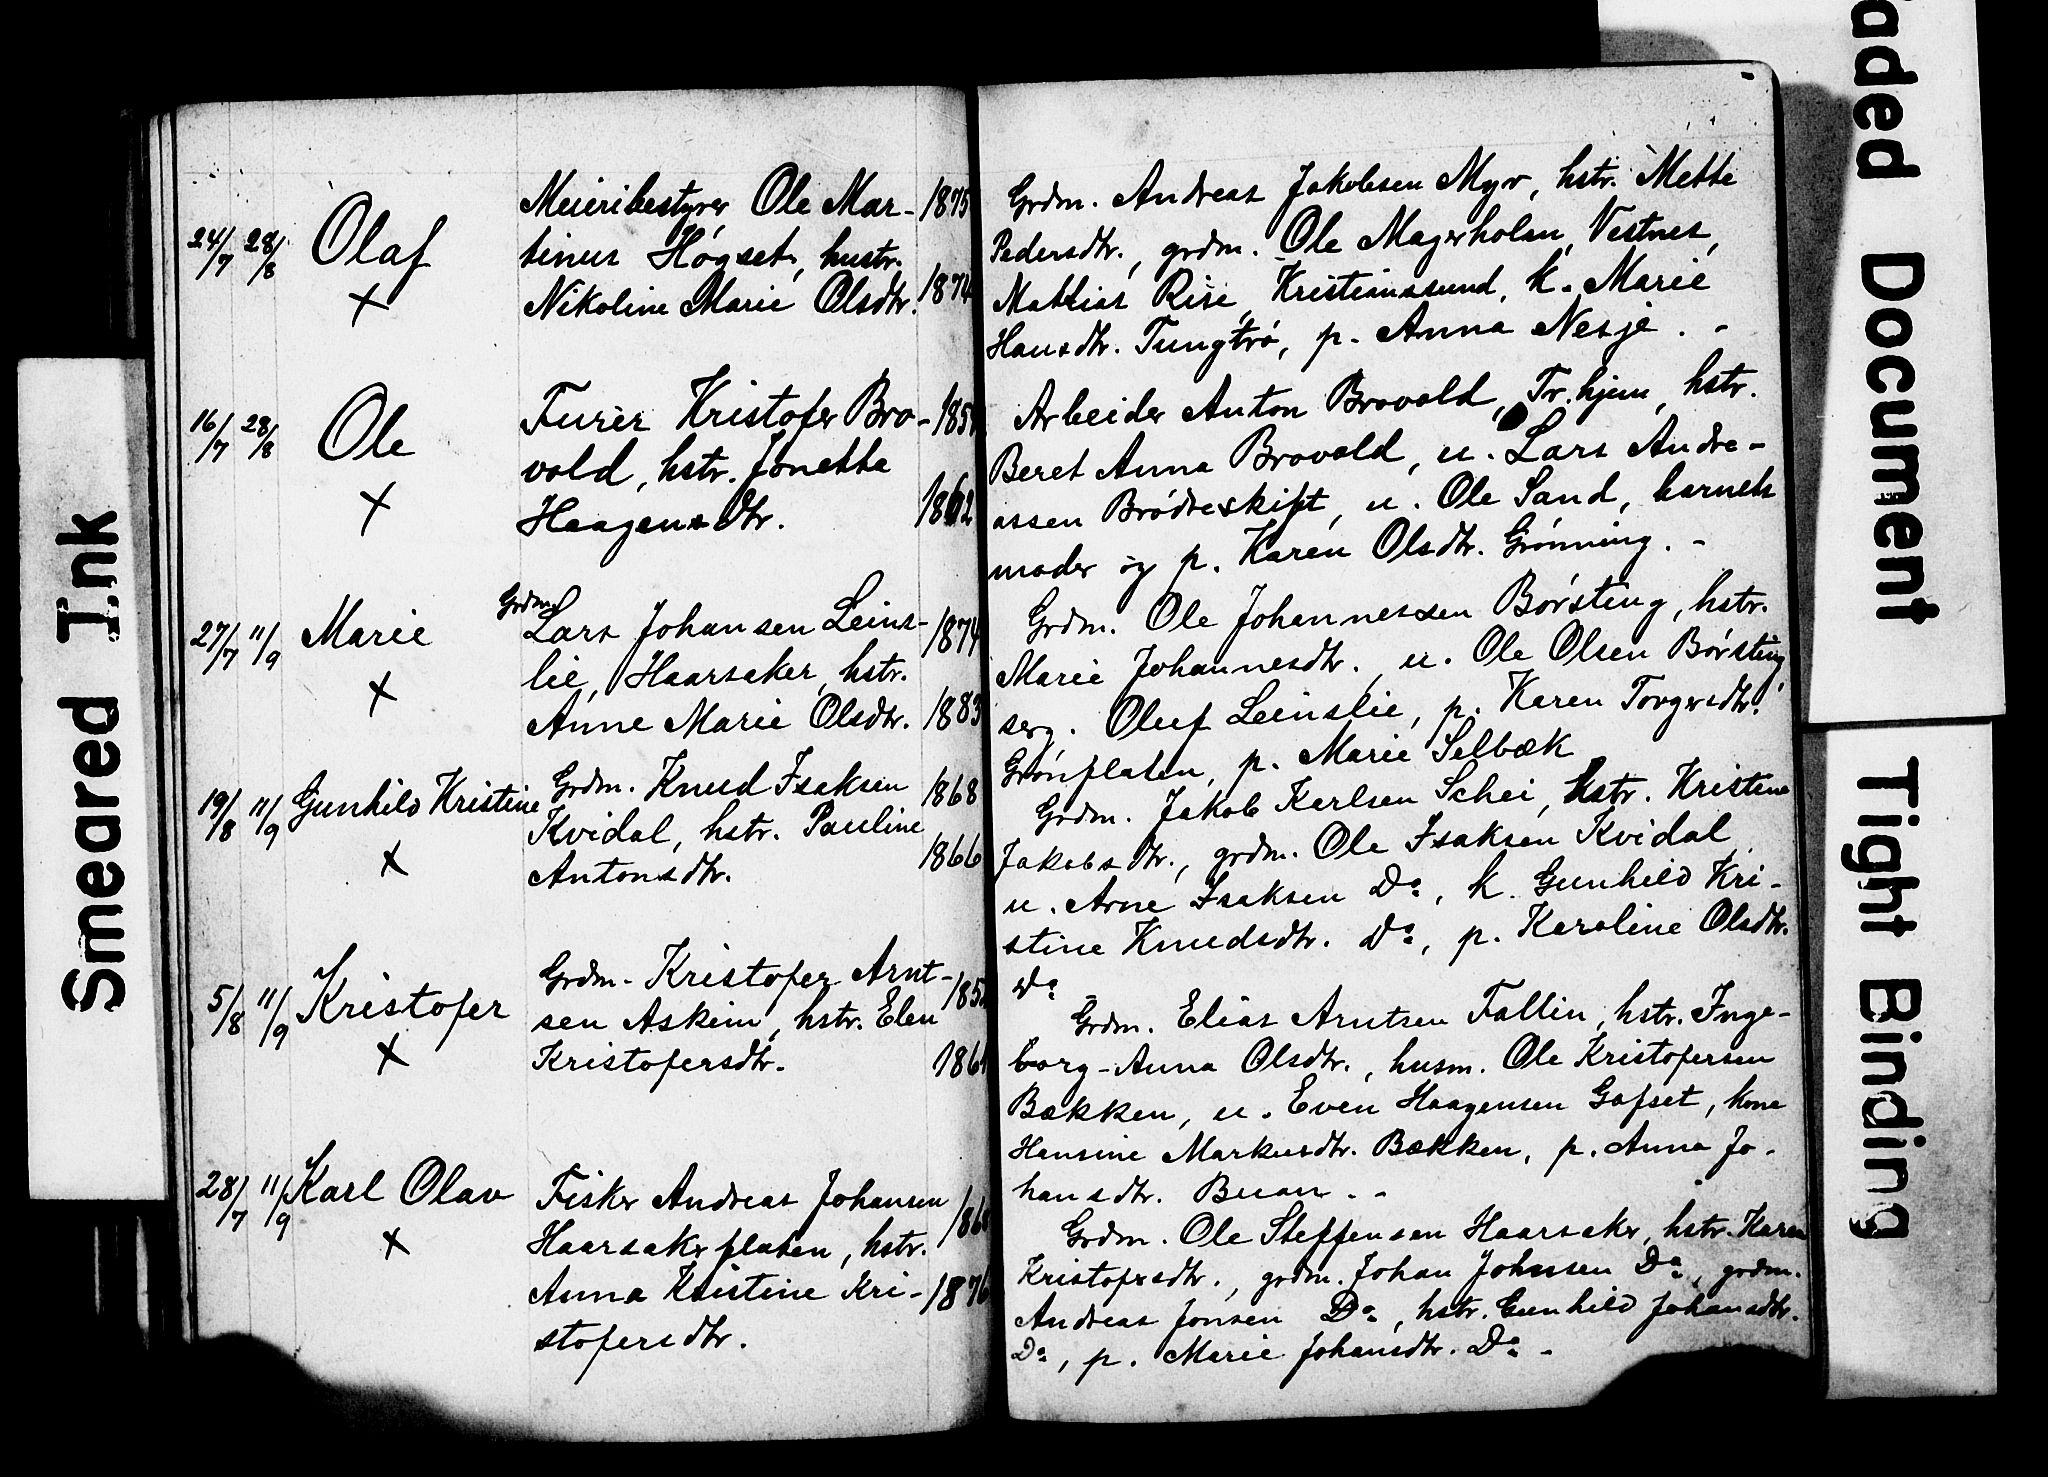 24/7 28/8 Olaf
×
Meieribestyrer Ole Mar- 1875
tinus Høgset, hustr.
Nikoline Marie Olsdtr. 1874
Grdm. Andreas Jakobsen Myr, hstr. Mette
Pedersdtr., grdm. Ole Magerholm, Vestnes,
Mattias Rise, Kristianssund, k. Marie
Hansdtr. Tungtrø, p. Anna Nesje. -
16/7 28/8 Ole
×
Furer Kristofer Bro-
vold, hstr. Jonetta
Haagensdtr. 1862
Arbeider Anton Brovold, Tr.hjem, hstr.
Beret Anna Brovold, u. Lars Andre-
assen Brødreskift, u. Ole Sand, barnets
moder og p. Karen Olsdtr. Grønning. -
27/7 11/9 Marie
×
Grdm.
Lars Johansen Leins- 1874
lie, Haarsaker, hstr.
Anne Marie Olsdtr. 1883
Grdm. Ole Johannessen Børsting, hstr.
Marie Johannesdtr., u. Ole Olsen Børsting,
serg. Oluf Leinslie, p. Karen Torgersdtr.
Grønflaten, p. Marie Selbæk
19/8 11/9 Gunhild Kristine
×
Grdm. Knud Isaksen 1868
Kvidal, hstr. Pauline
Antonsdtr. 1866
Grdm. Jakob Karlsen Schei, hstr. Kristine
Jakobsdtr., grdm. Ole Isaksen Kvidal,
u. Arne Isaksen Do, k. Gunhild Kri-
stine Knudsdtr. Do, p. Karoline Olsdtr.
Do -
5/8 11/9 Kristofer
×
Grdm. Kristofer Arnt-
sen Askim, hstr. Elen
Kristofersdtr.
Grdm. Elias Arntsen Fallin, hstr. Inge-
borg-Anna Olsdtr., husm. Ole Kristofersen
Bækken, u. Even Haagensen Gafset, kone
Hansine Markusdtr. Bækken, p. Anna Jo-
hansdtr. Buan. -
28/7 11/9 Karl Olav
×
Fisker Andreas Johansen
Haarsakrflaten, hstr.
Anna Kristine Kri- 1876
stofersdtr.
Grdm. Ole Steffensen Haarsakr, hstr. Karen
Kristofersdtr., grdm. Johan Johnsen Do, grdm.
Andreas Jonsen Do, hstr. Gunhild Johansdtr.
Do, p. Marie Johansdtr. Do -
Smeared Ink
aded Document
Tight Binding